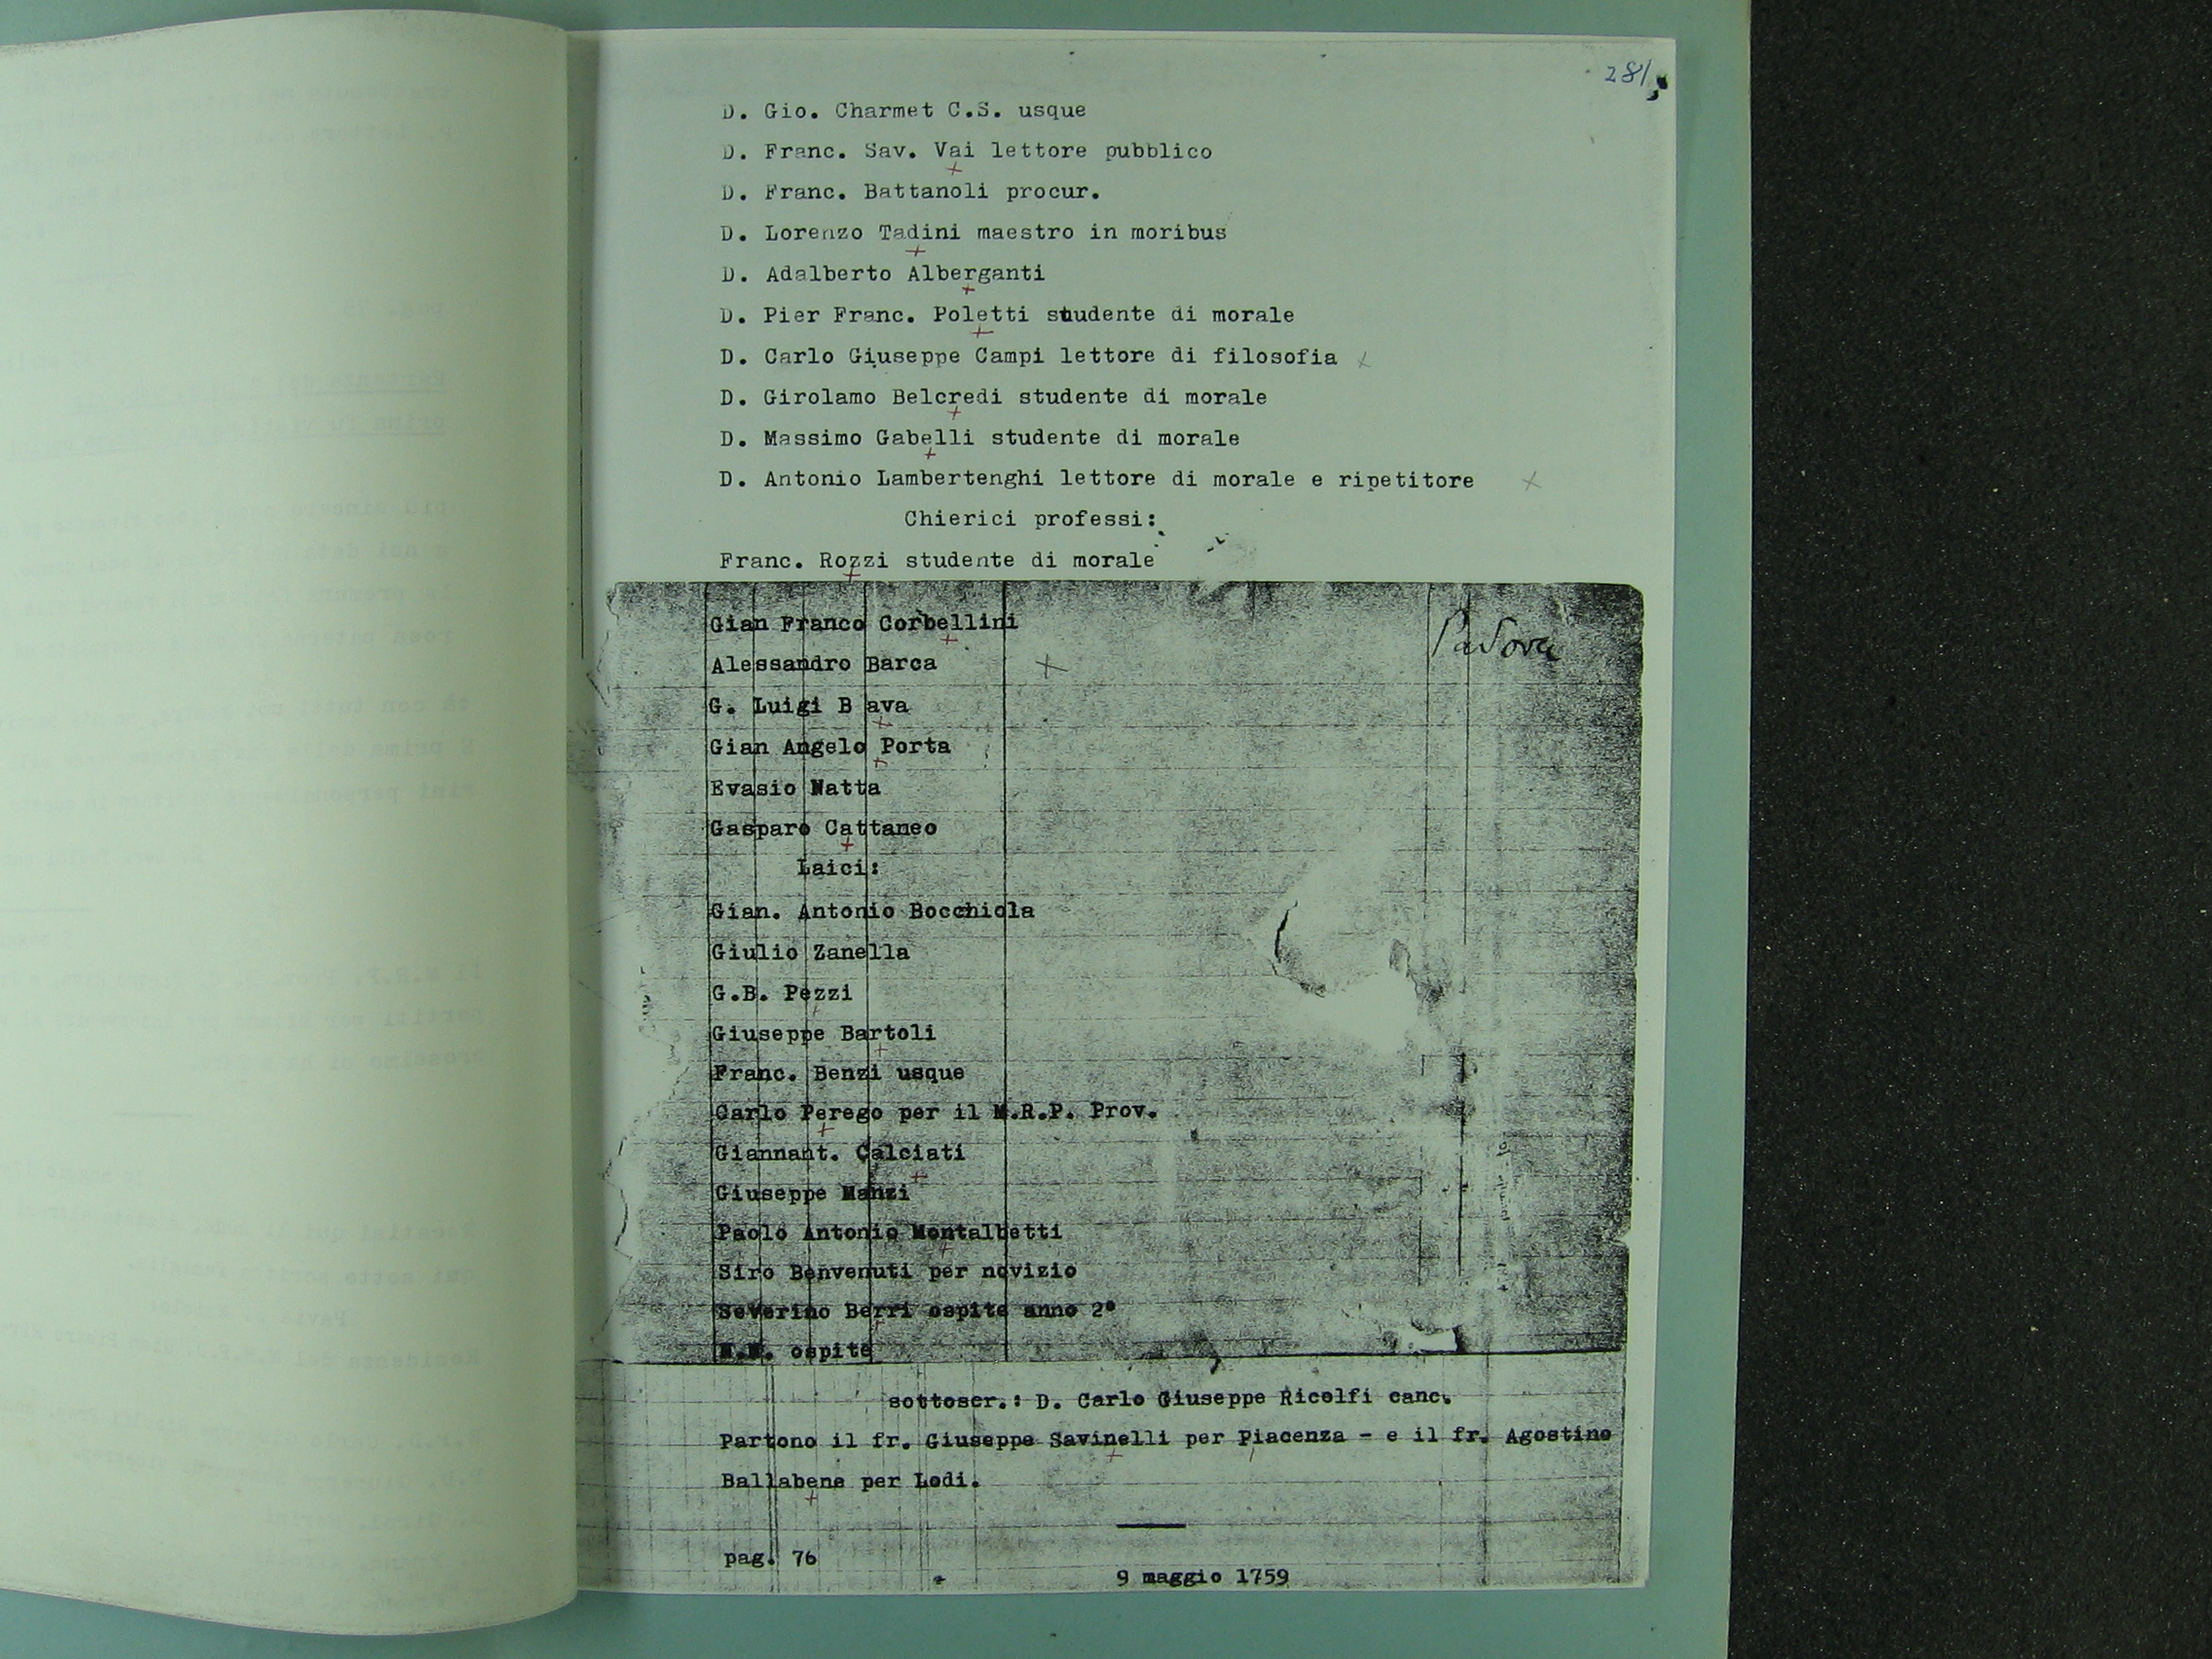 281
D. Gio. Charmet C.S. usque
D. Franc. Sav. Vai lettore pubblico
D. Franc. Battanoli procur.
D. Lorenzo Tadini maestro in moribus
D. Adalberto Alberganti
D. Pier Franc. Poletti studente di morale
D. Carlo Giuseppe Campi lettore di filosofia
D. Girolamo Belcredi studente di morale
D. Massimo Gabelli studente di morale
D. Antonio Lambertenghi lettore di morale e ripetitore
Chierici professi:
Franc. Rozzi studente di morale
Gian Franco Corbellini
Padova
Alessandro Barca
G. Luigi Bava
Gian Angelo Porta
Evasio Natta
Gasparo Cattaneo
Laici:
Gian. Antonio Bocchiola
Giulio Zanella
G.B. Pezzi
Giuseppe Bartoli
Franc. Benzi usque
Carlo Perego per il M.R.P. Prov.
Giannant. Calciati
Giuseppe Manzi
Paolo Antonio Montalbetti
Siro Benvenuti per novizio
Severino Berri ospite anno 2°
N.N. ospite
sottoscr.: D. Carlo Giuseppe Ricolfi canc.
Partono il fr. Giuseppe Savinelli per Piacenza - e il fr. Agostino
Ballabene per Lodi.
pag. 76
9 maggio 1759